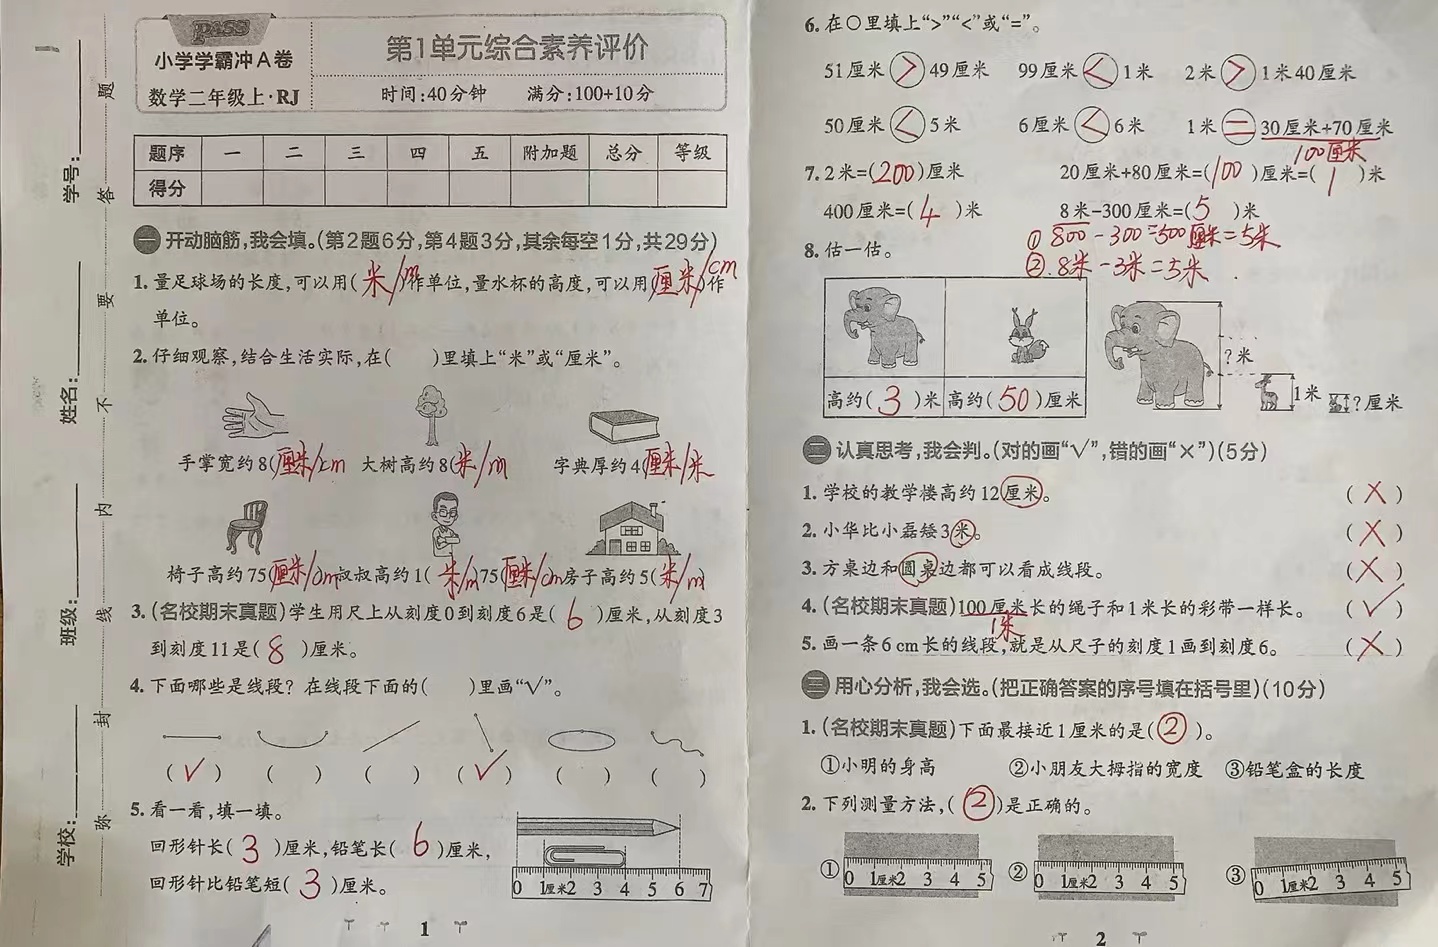 PASS
小学学霸冲A卷
数学二年级上·RJ
第1单元综合素养评价
时间:40分钟 满分:100+10分
题序 一 二 三 四 五 附加题 总分 等级
得分
学号:
姓名:
班级:
学校:
题 答 要 不 内 线 封 弥
一 开动脑筋,我会填。(第2题6分,第4题3分,其余每空1分,共29分)
1. 量足球场的长度,可以用(米/m)作单位,量水杯的高度,可以用(厘米/cm)作
单位。
2. 仔细观察,结合生活实际,在( )里填上“米”或“厘米”。
手掌宽约8(厘米/cm 大树高约8(米/m) 字典厚约4(厘米/米
椅子高约75(厘米/cm 叔叔高约1(米/m)75(厘米/cm 房子高约5(米/m)
3. (名校期末真题)学生用尺上从刻度0到刻度6是( 6 )厘米,从刻度3
到刻度11是( 8 )厘米。
4. 下面哪些是线段?在线段下面的( )里画“√”。
(√) ( ) ( ) (√) ( ) ( )
5. 看一看,填一填。
回形针长( 3 )厘米,铅笔长( 6 )厘米,
回形针比铅笔短( 3 )厘米。
0 1厘米2 3 4 5 6 7
1
6. 在○里填上“>”“<”或“=”。
51厘米 > 49厘米 99厘米 < 1米 2米 > 1米40厘米
50厘米 < 5米 6厘米 < 6米 1米 = 30厘米+70厘米
100厘米
7. 2米=(200)厘米 20厘米+80厘米=(100)厘米=( 1 )米
400厘米=( 4 )米 8米-300厘米=( 5 )米
① 800-300=500厘米=5米
② 8米-3米=5米
8. 估一估。
高约( 3 )米 高约( 50 )厘米
?米 1米 ?厘米
二 认真思考,我会判。(对的画“√”,错的画“×”)(5分)
1. 学校的教学楼高约12厘米。 (×)
2. 小华比小磊矮3米。 (×)
3. 方桌边和圆桌边都可以看成线段。 (×)
4. (名校期末真题)100厘米长的绳子和1米长的彩带一样长。 (√)
1米
5. 画一条6 cm长的线段,就是从尺子的刻度1画到刻度6。 (×)
三 用心分析,我会选。(把正确答案的序号填在括号里)(10分)
1. (名校期末真题)下面最接近1厘米的是(②)。
①小明的身高 ②小朋友大拇指的宽度 ③铅笔盒的长度
2. 下列测量方法,(②)是正确的。
① 0 1厘米2 3 4 5 ② 0 1厘米2 3 4 5 ③ 0 1厘米2 3 4 5
2